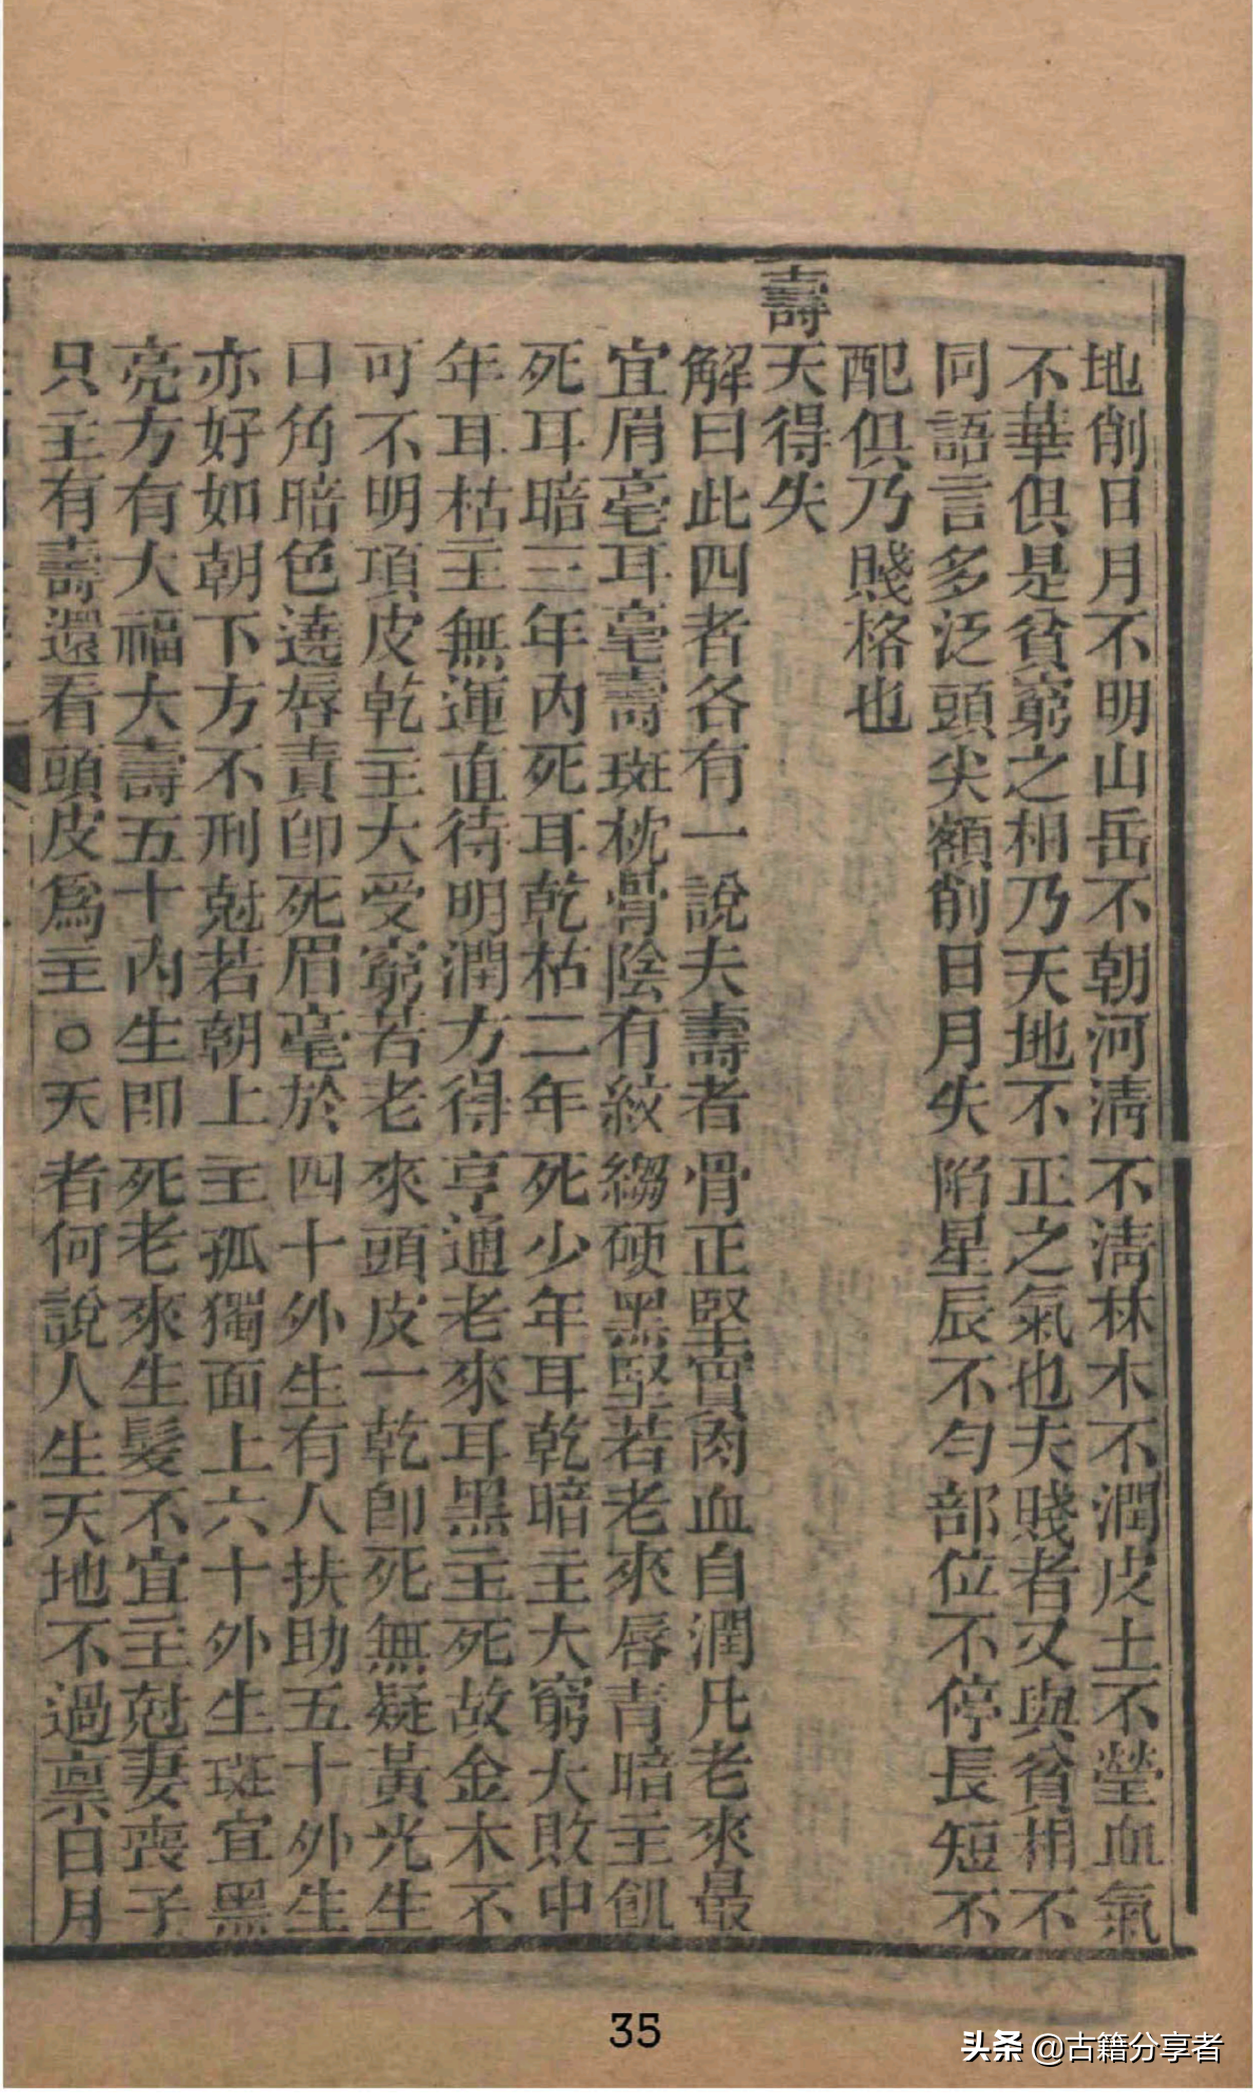 地削日月不明山岳不朝河清不清林木不潤皮土不瑩血氣
不華俱是貧窮之相乃天地不正之氣也夫賤者又與貧相不
同語言多泛頭尖額削日月失陷星辰不勻部位不停長短不
配俱乃賤格也
壽夭得失
解曰此四者各有一說夫壽者骨正堅實肉血自潤凡老來最
宜眉毫耳毫壽斑枕骨陰有紋縐硬黑堅若老來唇青暗主飢
死耳暗三年內死耳乾枯二年死少年耳乾暗主大窮大敗中
年耳枯主無運直待明潤方得亨通老來耳黑主死故金木不
可不明項皮乾主大受窮若老來頭皮一乾即死無疑黃光生
口角暗色遶唇責即死眉毫於四十外生有人扶助五十外生
亦好如朝下方不刑尅若朝上主孤獨面上六十外生斑宜黑
亮方有大福大壽五十內生即死老來生髮不宜主尅妻喪子
只主有壽還看頭皮爲主○夭者何說人生天地不過禀日月
35
头条 @古籍分享者